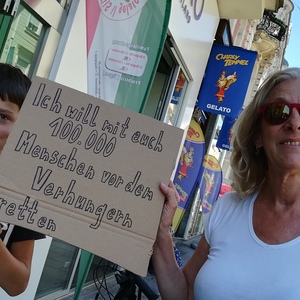 Ich will mit euch
100.000
Menschen vor dem
Verhungern
retten
GELATO